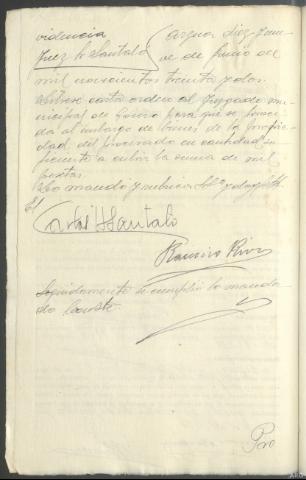 videncia
Juez Sr Santaló
Azpua diez y nue-
ve de Junio de
mil novecientos treinta y dos.
Líbrese carta orden al Juzgado mu-
nicipal de para que se proce-
da al embargo de bienes de la propie-
dad del procesado en cantidad su-
ficiente a cubrir la suma de mil
pesetas.
Lo mandó y rubrica S.Sª y doy fe.
Santaló
Ramiro
Seguidamente se cumplió lo manda-
do
Pro